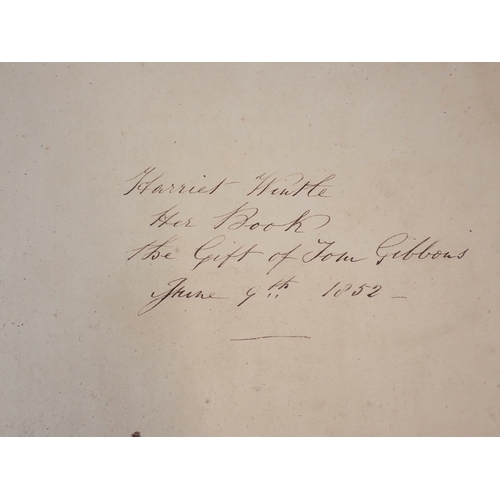 Harriet Wintle
Her Book
the Gift of Tom Gibbons
June 9th 1852 –